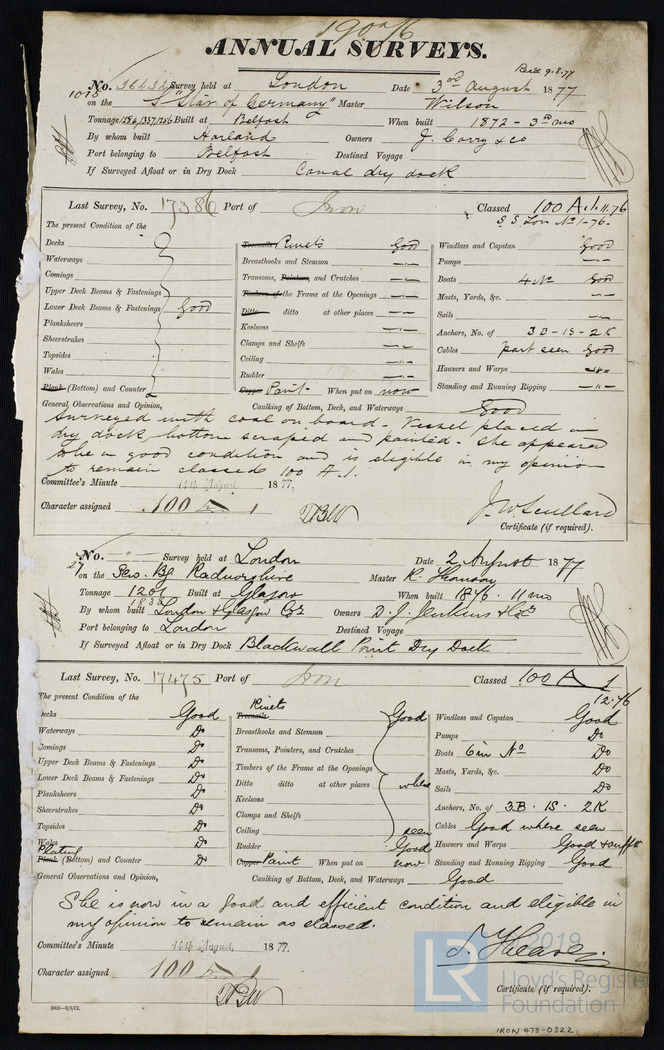 ANNUAL SURVEYS.
Recd 9.8.77
No. 36432 Survey held at London Date 3rd August 1877
1015 on the S "Star of Germany" Master Wilson
Tonnage 1256/1337/1256 Built at Belfast When built 1872 - 3rd mo
By whom built Harland Owners J. Corry & Co
Port belonging to Belfast Destined Voyage
If Surveyed Afloat or in Dry Dock Canal dry dock
Last Survey, No. 17386 Port of Iron Classed 100 A.1. 11.76
S.S. Lon No 1-76-
The present Condition of the
Decks
Waterways
Comings
Upper Deck Beams & Fastenings
Lower Deck Beams & Fastenings Good
Planksheers
Sheerstrakes
Topsides
Wales
Plank (Bottom) and Counter
Treenails Rivets Good
Breasthooks and Stemson -"-
Transoms, Pointers, and Crutches -"-
Timbers of the Frame at the Openings -"-
Ditto ditto at other places -"-
Keelsons -"-
Clamps and Shelfs -"-
Ceiling -"-
Rudder -"-
Copper Paint - When put on now
Windlass and Capstan Good
Pumps -"-
Boats 4 No Good
Masts, Yards, &c. -"-
Sails -"-
Anchors, No. of 3B - 1S - 2K
Cables part seen Good
Hawsers and Warps -"-
Standing and Running Rigging -"-
General Observations and Opinion, Caulking of Bottom, Deck, and Waterways Good
Surveyed with coal on board - Vessel placed in
dry dock bottom scraped and painted - She appeared
to be in good condition and is eligible in my opinion
to remain classed 100 A.1.
Committee's Minute 14th August 1877.
Character assigned 100 A 1
TBW
J. W. Scullard
Certificate (if required).
No. Survey held at London Date 2 August 1877
27 on the Scw. Bg. Radnorshire Master R. Thomson
Tonnage 1201 Built at Glasgow When built 1876. 11 mo
By whom built London & Glasgow Co Owners D. J. Jenkins & Co
Port belonging to London Destined Voyage
If Surveyed Afloat or in Dry Dock Blackwall Point Dry Dock
Last Survey, No. 17475 Port of Iron Classed 100 A 1
12.76
The present Condition of the
Decks Good
Waterways Do
Comings Do
Upper Deck Beams & Fastenings Do
Lower Deck Beams & Fastenings Do
Planksheers Do
Sheerstrakes Do
Topsides Do
Wales Do
Plating
Plank (Bottom) and Counter Do
Rivets
Treenails Good
Breasthooks and Stemson
Transoms, Pointers, and Crutches
Timbers of the Frame at the Openings
Ditto ditto at other places where
Keelsons
Clamps and Shelfs
Ceiling seen
Rudder Good
Copper Paint When put on now
Windlass and Capstan Good
Pumps Do
Boats 6 in No Do
Masts, Yards, &c. Do
Sails Do
Anchors, No. of 3B. 1S - 2K
Cables Good where seen
Hawsers and Warps Good & sufft
Standing and Running Rigging Good
General Observations and Opinion, Caulking of Bottom, Deck, and Waterways Good
She is now in a good and efficient condition and eligible in
my opinion to remain as classed.
Committee's Minute 14th August 1877.
Character assigned 100 A 1
TBW
Certificate (if required).
LR
2019
Lloyd's Register
Foundation
IRON 473-0322